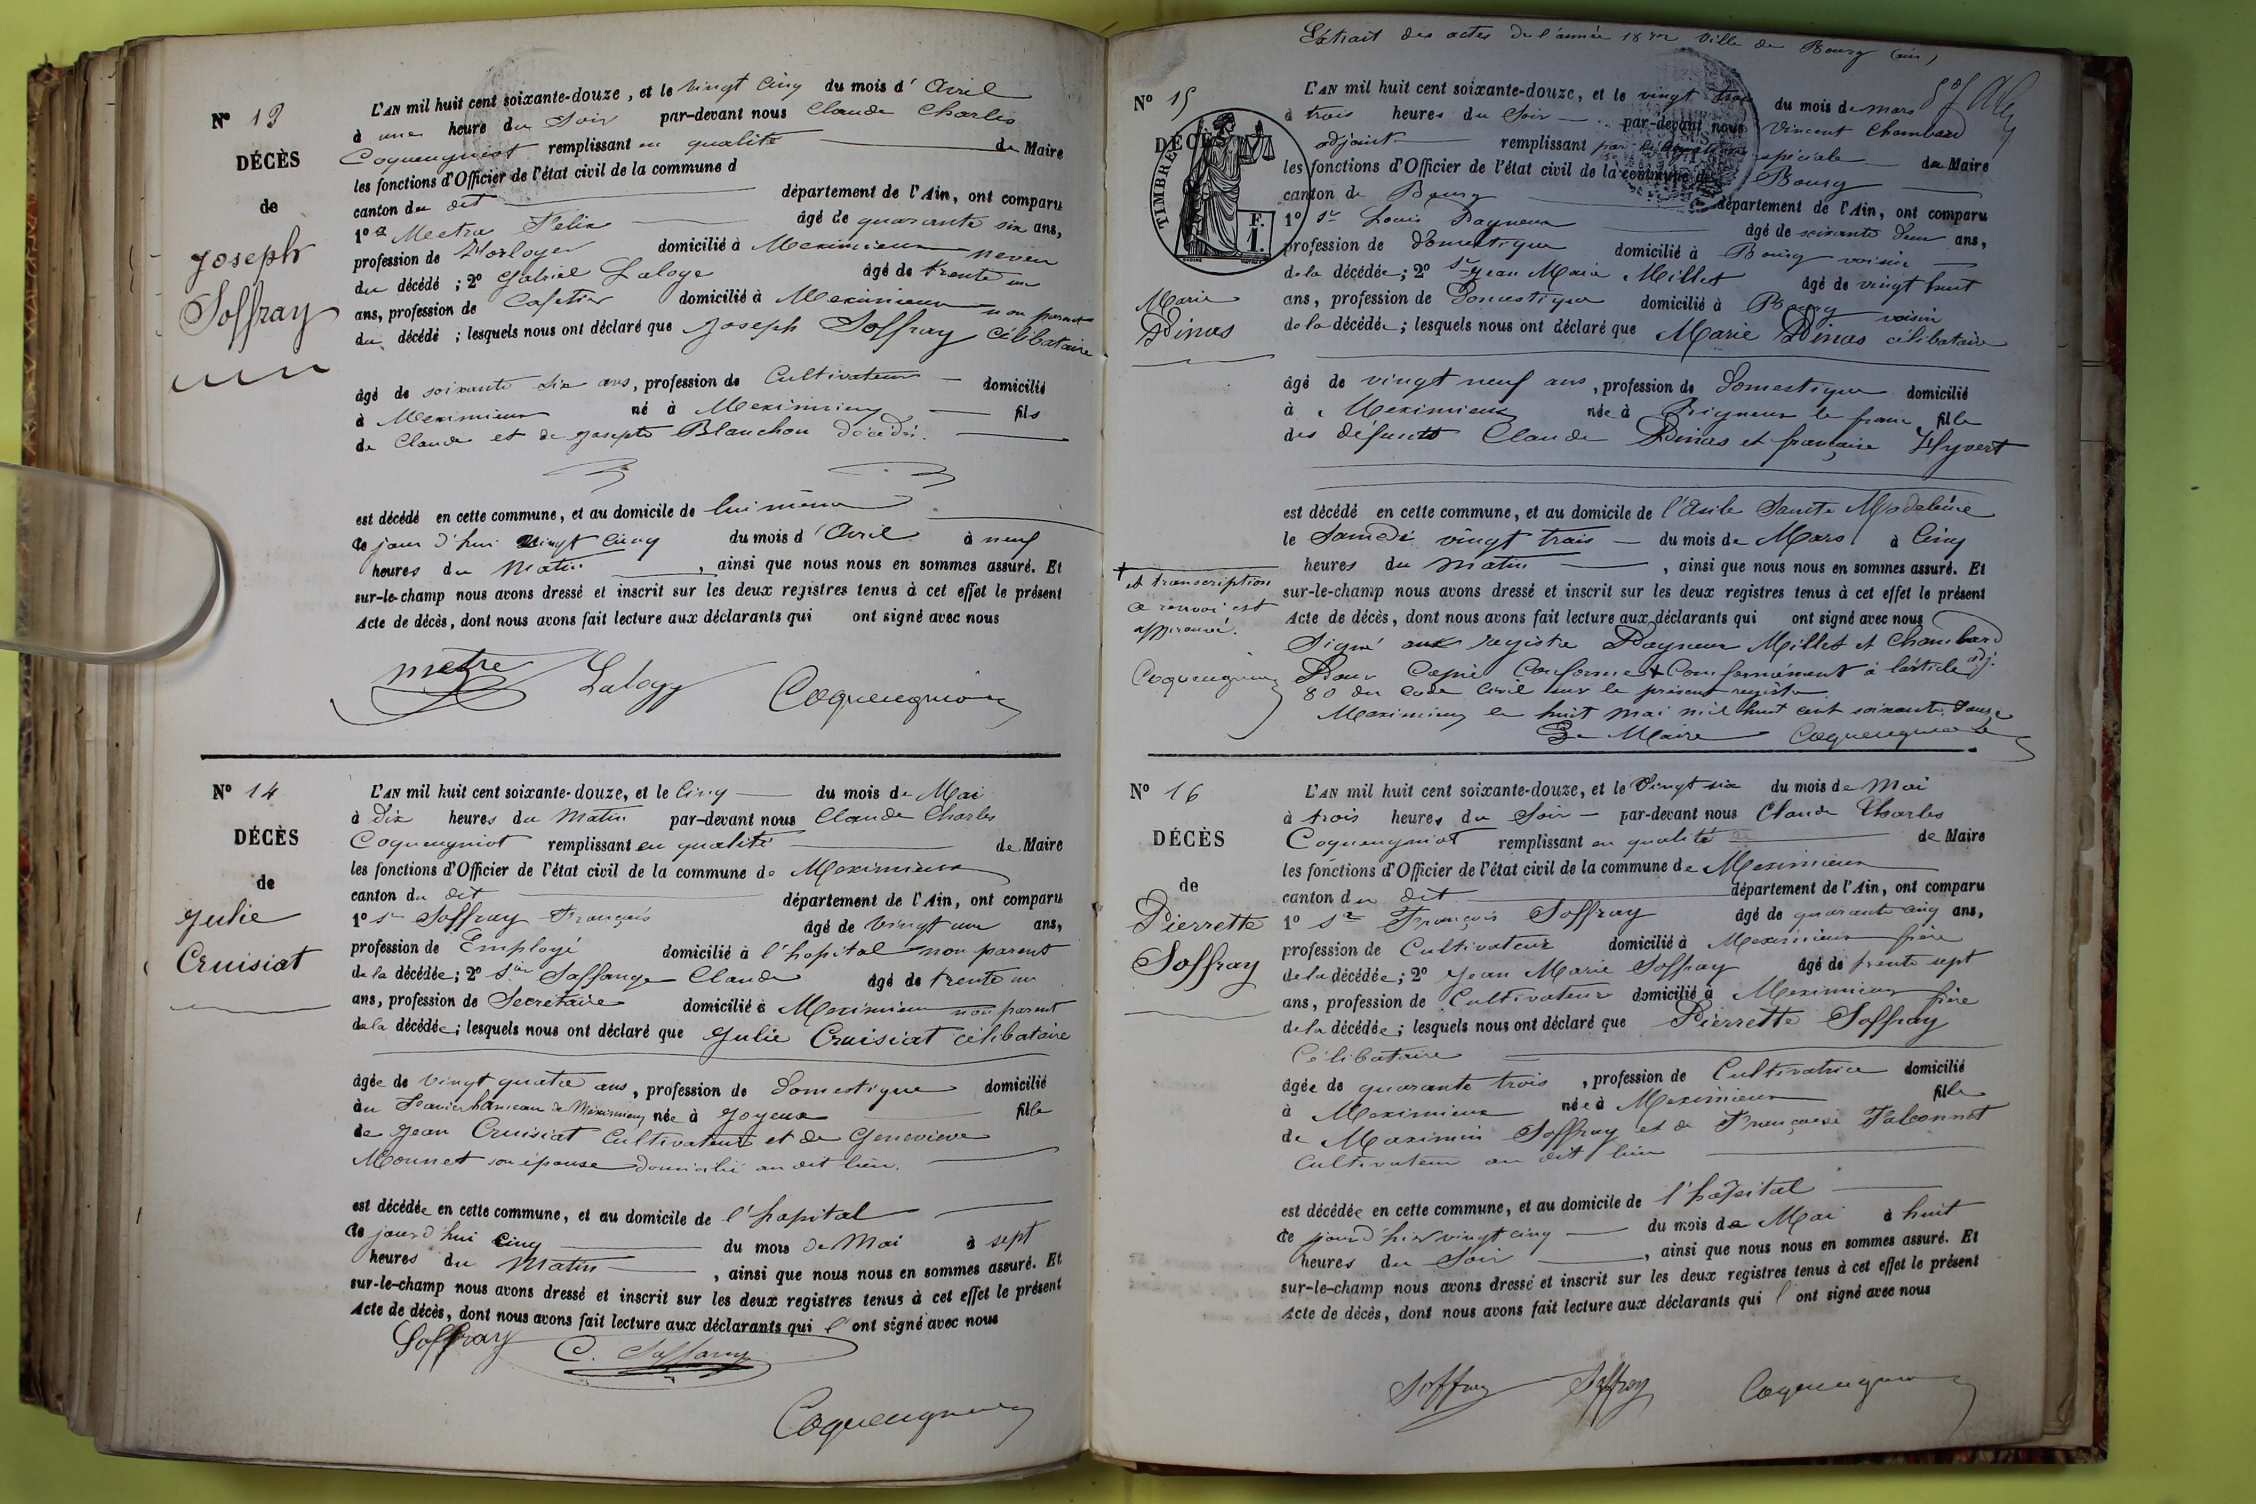 Nº 13
DÉCÈS
de
Joseph
Soffray
L'AN mil huit cent soixante-douze, et le vingt cinq du mois d' Avril
à une heure du Soir par-devant nous Claude Charles
Coquengniot remplissant en qualité de Maire
les fonctions d'Officier de l'état civil de la commune d
canton du dit département de l'Ain, ont comparu
1º Metra Félix âgé de quarante six ans,
profession de Horloger domicilié à Meximieux neveu
du décédé ; 2º Gabriel Laloge âgé de trente un
ans, profession de Cafetier domicilié à Meximieux non parent
du décédé ; lesquels nous ont déclaré que Joseph Soffray célibataire
âgé de soixante dix ans, profession de Cultivateur domicilié
à Meximieux né à Meximieux fils
de Claude et de Josepte Blanchon décédés.
est décédé en cette commune, et au domicile de lui même
ce jour d'hui vingt cinq du mois d' Avril à neuf
heures du Matin , ainsi que nous nous en sommes assuré. Et
sur-le-champ nous avons dressé et inscrit sur les deux registres tenus à cet effet le présent
Acte de décès, dont nous avons fait lecture aux déclarants qui ont signé avec nous
metre Laloge Coquengniot
Nº 14
DÉCÈS
de
Julie
Cruisiat
L'AN mil huit cent soixante-douze, et le Cinq du mois de Mai
à Dix heures du Matin par-devant nous Claude Charles
Coquengniot remplissant en qualité de Maire
les fonctions d'Officier de l'état civil de la commune de Meximieux
canton du dit département de l'Ain, ont comparu
1º Sr Soffray François âgé de vingt un ans,
profession de Employé domicilié à l'hopital non parent
de la décédée; 2º Sieur Saffange Claude âgé de trente un
ans, profession de Secretaire domicilié à Meximieux non parent
de la décédée; lesquels nous ont déclaré que Julie Cruisiat célibataire
âgée de vingt quatre ans, profession de Domestique domicilié
au hameau de Méximieux née à Joyeux fille
de Jean Cruisiat Cultivateur et de Genevieve
Monnet son épouse domicilié au dit lieu.
est décédée en cette commune, et au domicile de l'hopital
ce jourd'hui Cinq du mois de Mai à sept
heures du Matin , ainsi que nous nous en sommes assuré. Et
sur-le-champ nous avons dressé et inscrit sur les deux registres tenus à cet effet le présent
Acte de décès, dont nous avons fait lecture aux déclarants qui l' ont signé avec nous
Soffray C. Saffange
Coquengniot
Extrait des actes de l'année 1872 Ville de Bourg (ain)
Nº 15
DÉCÈS
TIMBRE
F. 1.
Marie
Pinas
L'AN mil huit cent soixante-douze, et le vingt trois du mois de mars
à trois heures du Soir par-devant nous Vincent Chambard
adjoint remplissant par délégation spéciale de Maire
les fonctions d'Officier de l'état civil de la commune de Bourg
canton de Bourg département de l'Ain, ont comparu
1º Sr Louis Pagneux âgé de soixante deux ans,
profession de domestique domicilié à Bourg voisin
de la décédée; 2º Sr Jean Marie Millet âgé de vingt huit
ans, profession de Domestique domicilié à Bourg voisin
de la décédée; lesquels nous ont déclaré que Marie Pinas célibataire
âgé de vingt neuf ans, profession de Domestique domicilié
à Meximieux née à Rigneux le franc fille
des défunts Claude Pinas et française Hyvert
est décédé en cette commune, et au domicile de l'Asile Sainte Madeleine
le Samedi vingt trois du mois de Mars à Cinq
heures du matin , ainsi que nous nous en sommes assuré. Et
sur-le-champ nous avons dressé et inscrit sur les deux registres tenus à cet effet le présent
Acte de décès, dont nous avons fait lecture aux déclarants qui ont signé avec nous
Signé au registre Pagneux Millet et Chambard adj.
Pour Copie Conforme + Conformément à l'article
80 du code civil sur le présent registre
Meximieux le huit mai mil huit cent soixante douze
Le Maire Coquengniot
+ et transcription
ce renvoi est
approuvé.
Coquengniot
Nº 16
DÉCÈS
de
Pierrette
Soffray
L'AN mil huit cent soixante-douze, et le Vingt six du mois de Mai
à trois heures du Soir par-devant nous Claude Charles
Coquengniot remplissant en qualité de Maire
les fonctions d'Officier de l'état civil de la commune de Meximieux
canton du dit département de l'Ain, ont comparu
1º Sr François Soffray âgé de quarante cinq ans,
profession de Cultivateur domicilié à Meximieux frère
de la décédée; 2º Jean Marie Soffray âgé de trente sept
ans, profession de Cultivateur domicilié à Meximieux frère
de la décédée; lesquels nous ont déclaré que Pierrette Soffray
Célibataire
âgée de quarante trois , profession de Cultivatrice domicilié
à Meximieux née à Meximieux fille
de Maximin Soffray et de Françoise Falconnet
Cultivateur au dit lieu
est décédée en cette commune, et au domicile de l'hôpital
ce jour d'hier vingt cinq du mois de Mai à huit
heures du Soir , ainsi que nous nous en sommes assuré. Et
sur-le-champ nous avons dressé et inscrit sur les deux registres tenus à cet effet le présent
Acte de décès, dont nous avons fait lecture aux déclarants qui l' ont signé avec nous
Soffray Soffray Coquengniot